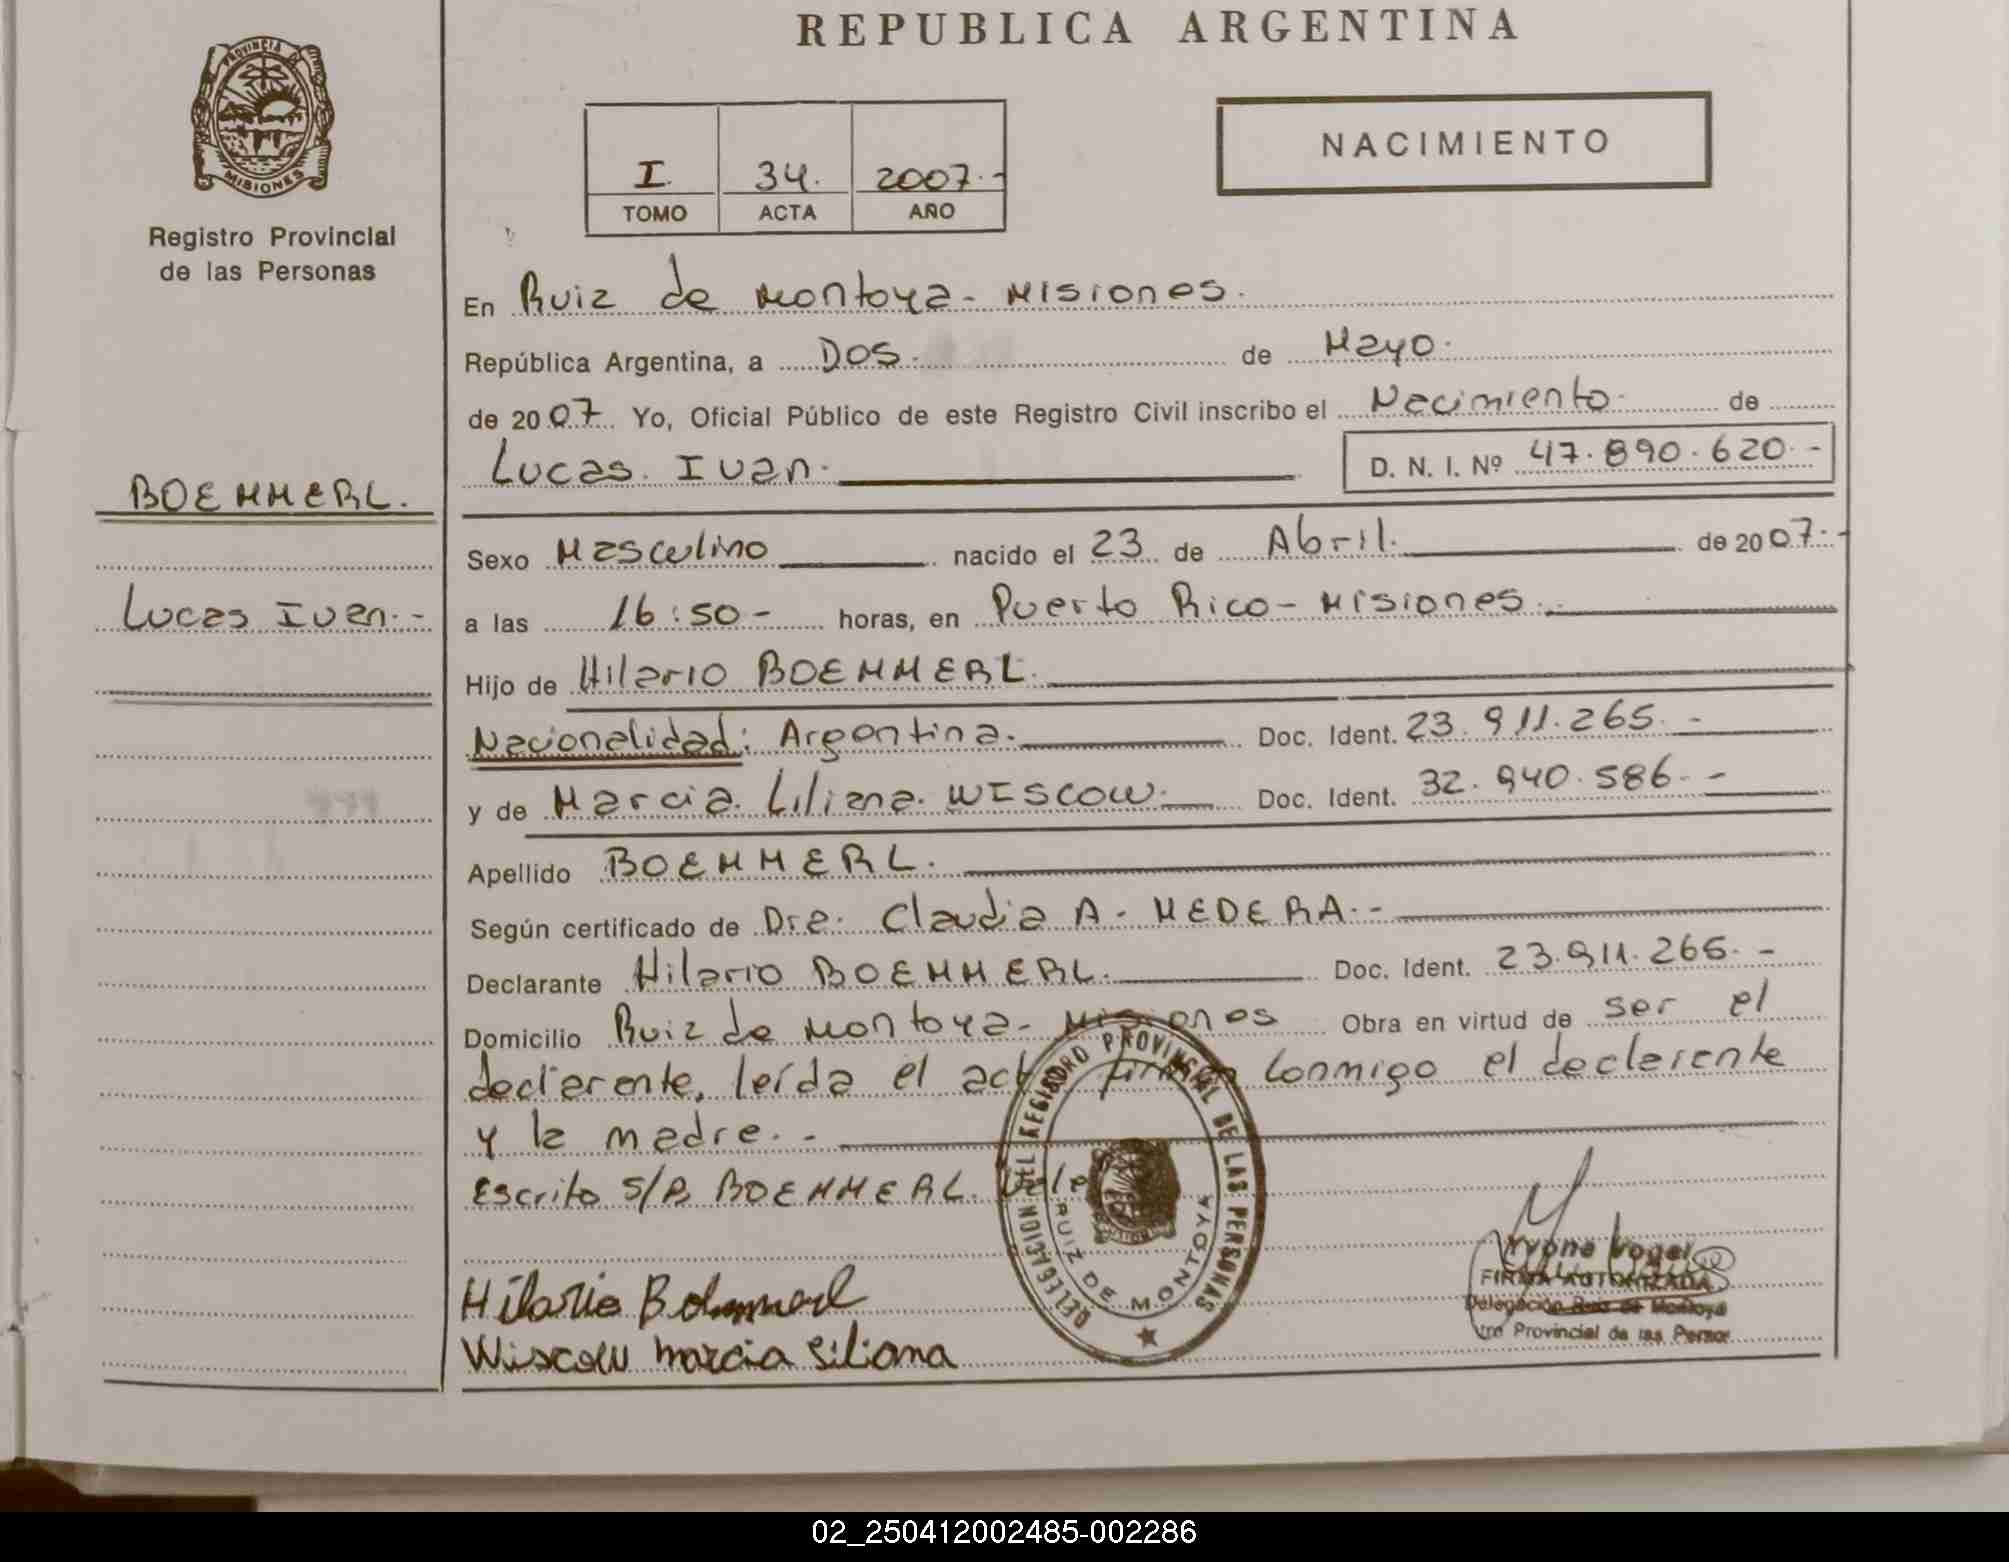 REPUBLICA ARGENTINA
PROVINCIA DE
MISIONES
Registro Provincial
de las Personas
I. 34. 2007.-
TOMO ACTA AÑO
NACIMIENTO
En Ruiz de Montoya- Misiones.
República Argentina, a Dos. de Mayo.
de 2007 Yo, Oficial Público de este Registro Civil inscribo el Nacimiento de
Lucas Ivan. D. N. I. Nº 47.890.620.-
BOEMMERL.
Lucas Ivan.-
Sexo Masculino nacido el 23 de Abril. de 2007.-
a las 16:50- horas, en Puerto Rico- Misiones.
Hijo de Hilario BOEMMERL.
Nacionalidad: Argentina. Doc. Ident. 23.911.265.-
y de Marcia Liliana WISCOW. Doc. Ident. 32.940.586.-
Apellido BOEMMERL.
Según certificado de Dra. Claudia A. MEDERA.-
Declarante Hilario BOEMMERL. Doc. Ident. 23.911.265.-
Domicilio Ruiz de Montoya- Misiones Obra en virtud de ser el
declarente, leída el acta firman conmigo el declarente
y la madre.-
Escrito S/R BOEMMERL. Vale
DELEGACION DEL REGISTRO PROVINCIAL DE LAS PERSONAS
RUIZ DE MONTOYA
Hilario
Wiscow Marcia Liliana
Yvone Vogel
FIRMA AUTORIZADA
Delegación Ruiz de Montoya
Provincial de las
02_250412002485-002286